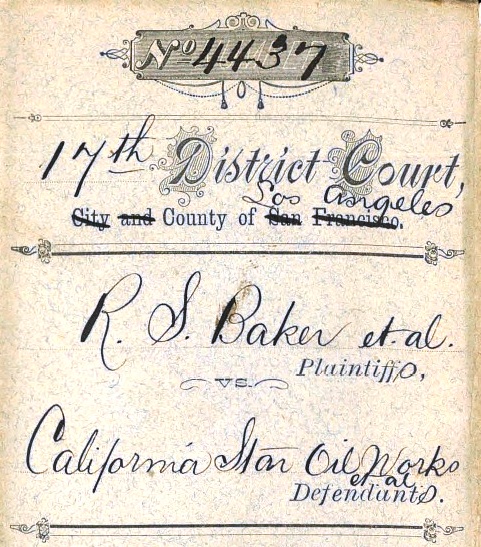 No 4437
17th District Court,
Los Angeles
City and County of San Francisco.
R. S. Baker et. al.
Plaintiffs,
vs.
California Star Oil Works
et al
Defendants.